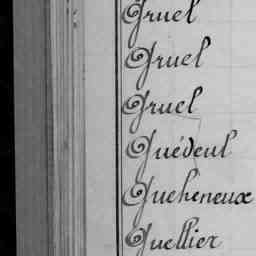 Gruel
Gruel
Gruel
Guédeul
Gueheneux
Guellier